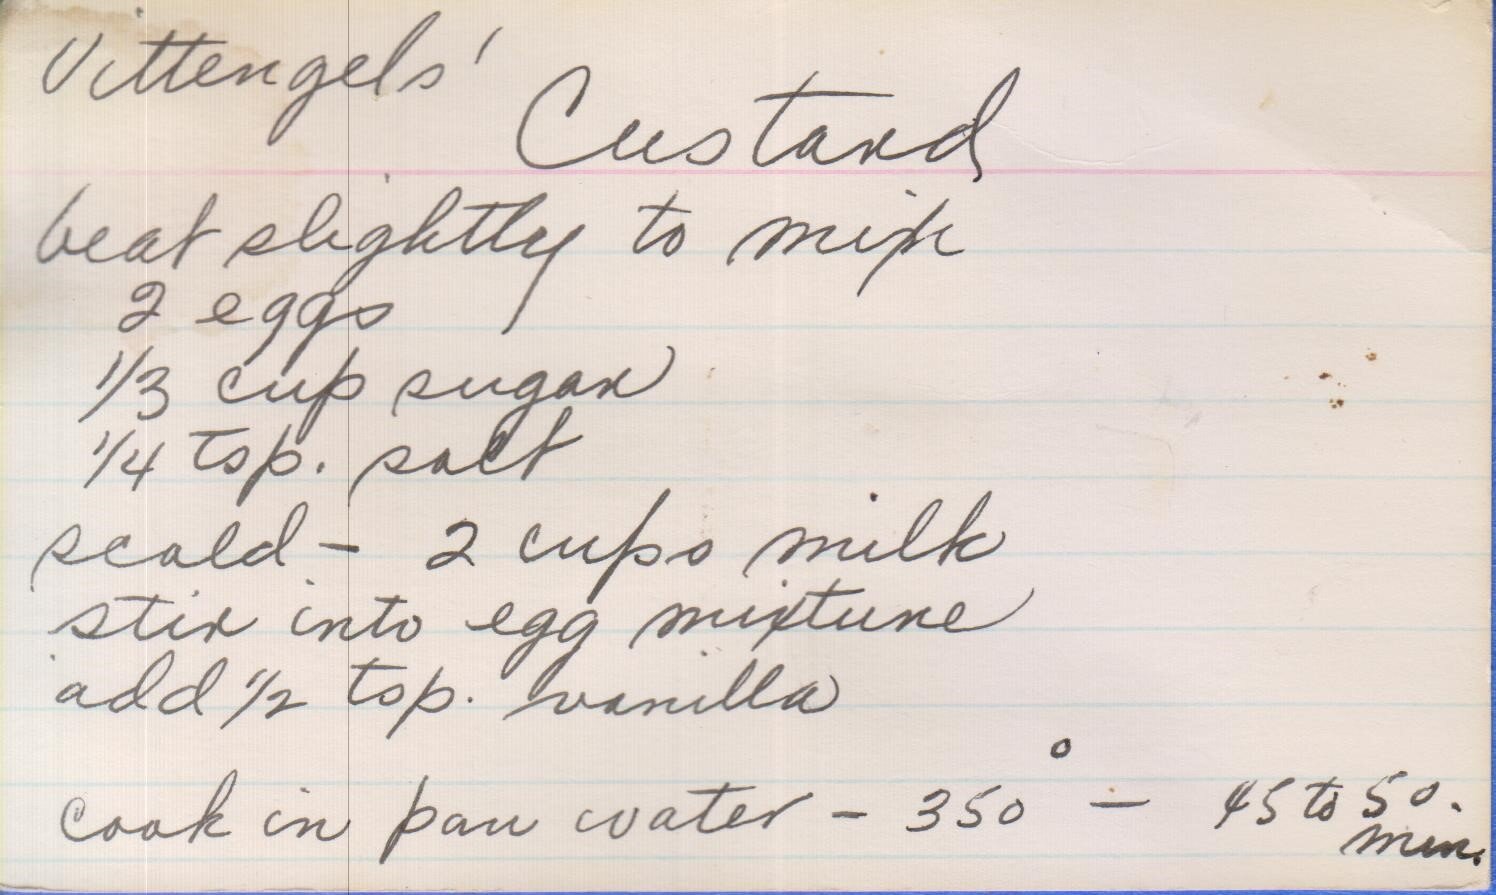 Vittengels'
Custard
beat slightly to mix
2 eggs
1/3 cup sugar
1/4 tsp. salt
scald - 2 cups milk
stir into egg mixture
add 1/2 tsp. vanilla
cook in pan water - 350° — 45 to 50.
min.